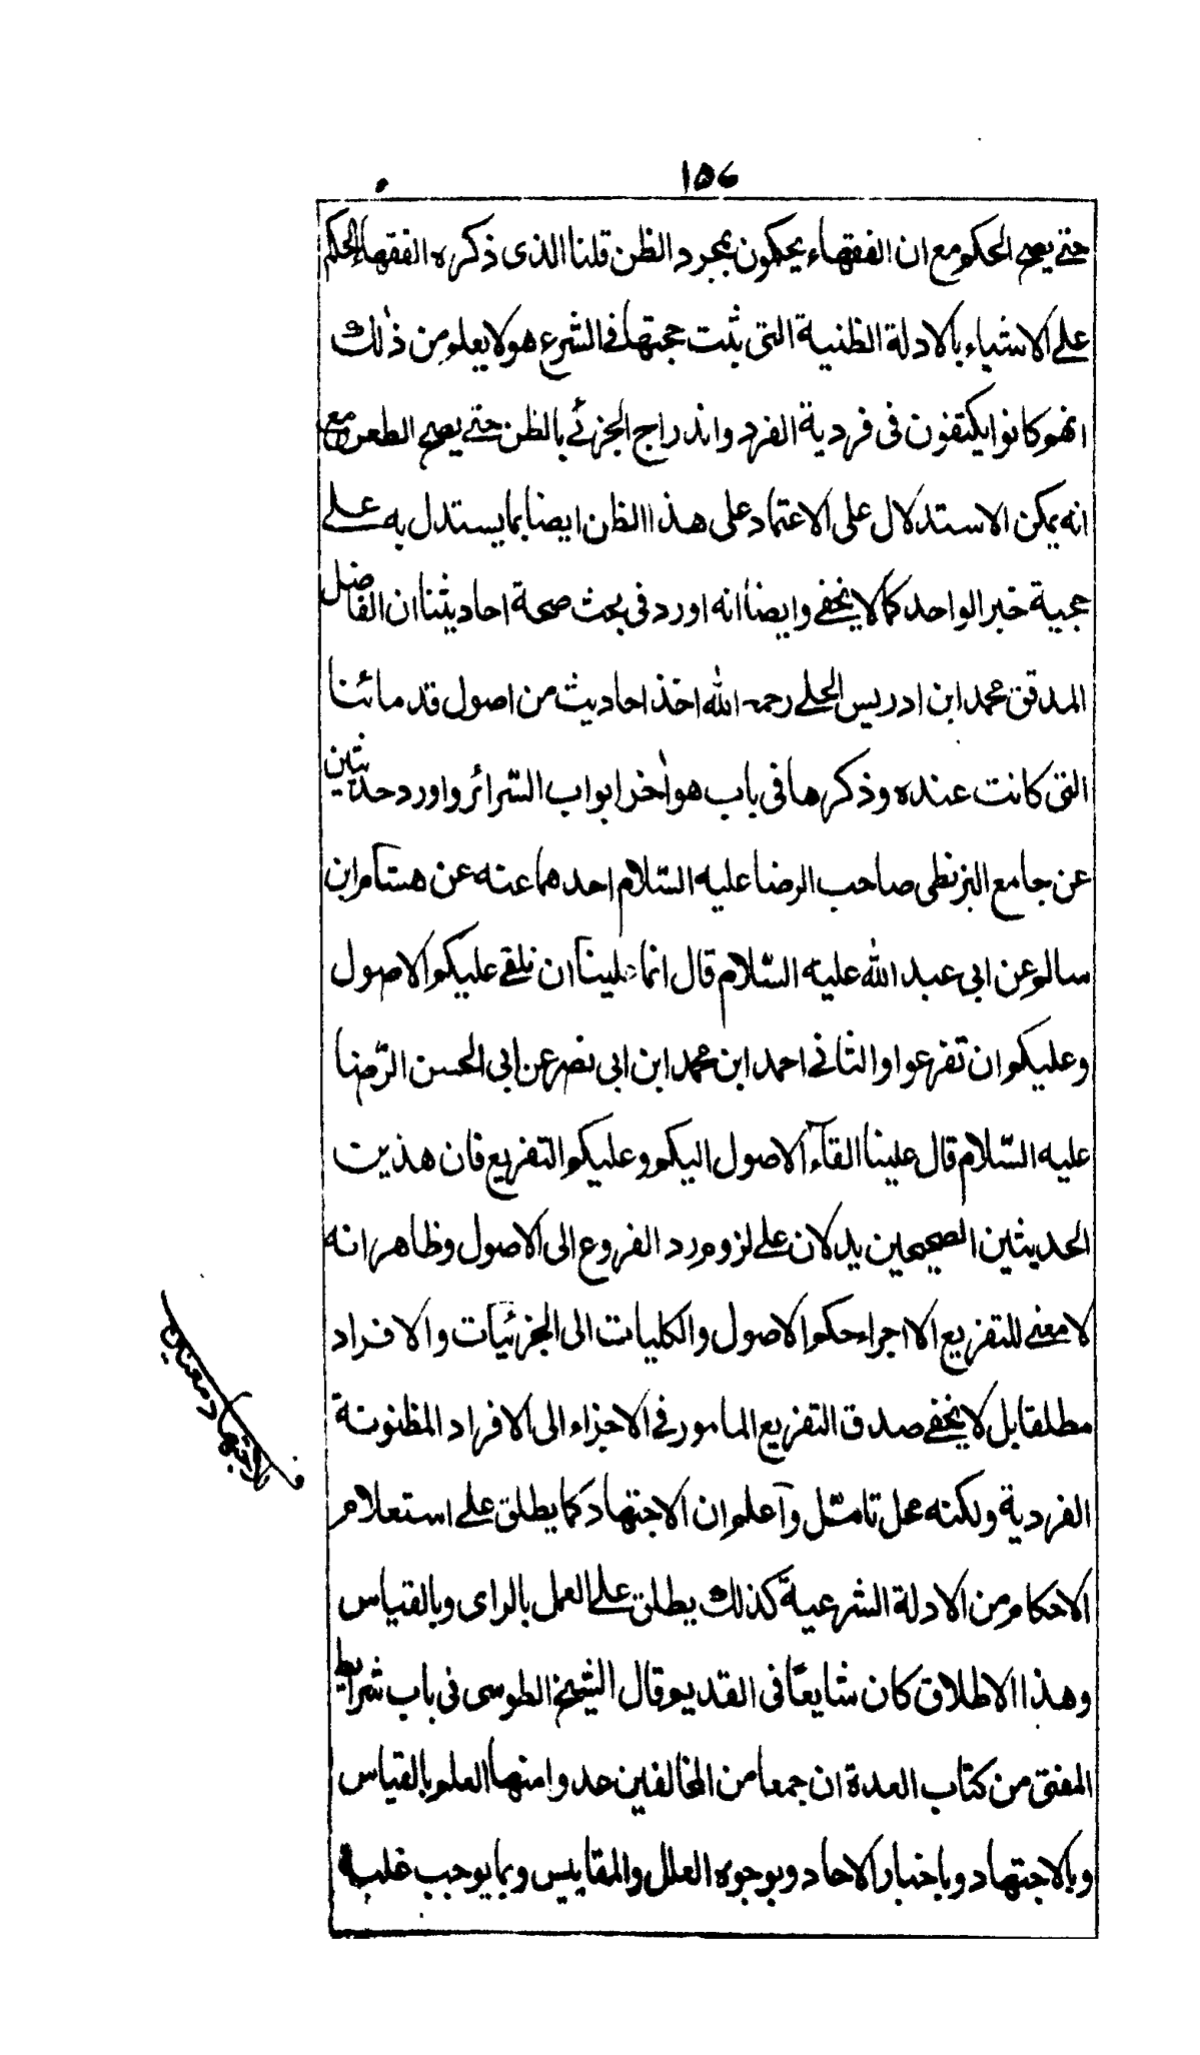 ۱۵۶
حتى يصح الحكم مع ان الفقهاء يحكمون بمجرد الظن قلنا الذى ذكره الفقهاء الحكم
على الاشياء بالادلة الظنية التى يثبت حجيتها فى الشرع هو لا يعلم من ذلك
انهم كانوا يكتفون فى فردية الفرد واندراج الجزئى بالظن حتى يصح الطعن مع
انه يمكن الاستدلال على الاعتماد على هذا الظن ايضا بما يستدل به على
حجية خبر الواحد كما لا يخفى وايضا انه اورد فى بحث صحة احاديثنا ان الفاضل
المدقق محمد ابن ادريس الحلى رحمه الله اخذ احاديث من اصول قدمائنا
التى كانت عنده وذكرها فى باب هو اخر ابواب السّرائر واورد حديثين
عن جامع البزنطى صاحب الرضا عليه السّلام احدهما عنه عن هشام ابن
سالم عن ابى عبد الله عليه السّلام قال انما علينا ان نلقى عليكم الاصول
وعليكم ان تفرعوا والثانى احمد ابن محمد ابن ابى نصر عن ابى الحسن الرّضا
عليه السّلام قال علينا القآء الاصول اليكم وعليكم التفريع فان هذين
الحديثين الصحيحين يدلان على لزوم رد الفروع الى الاصول وظاهر انه
لا معنى للتفريع الا اجراء حكم الاصول والكليات الى الجزئيات والافراد
مطلقا بل لا يخفى صدق التفريع المامور فى الاجزاء الى الافراد المظنونة
الفردية ولكنه محل تامّل وآعلم ان الاجتهاد كما يطلق على استعلام
الاحكام من الادلة الشرعية كذلك يطلق على العمل بالراى وبالقياس
وهذا الاطلاق كان شايعًا فى القديم قال الشيخ الطوسى فى باب شرايط
المفتى من كتاب العدة ان جمعا من المخالفين عدوا منها العلم بالقياس
وبالاجتهاد وباخبار الاحاد وبوجوه العلل والمقاييس وبما يوجب غلبة
الاجتهاد